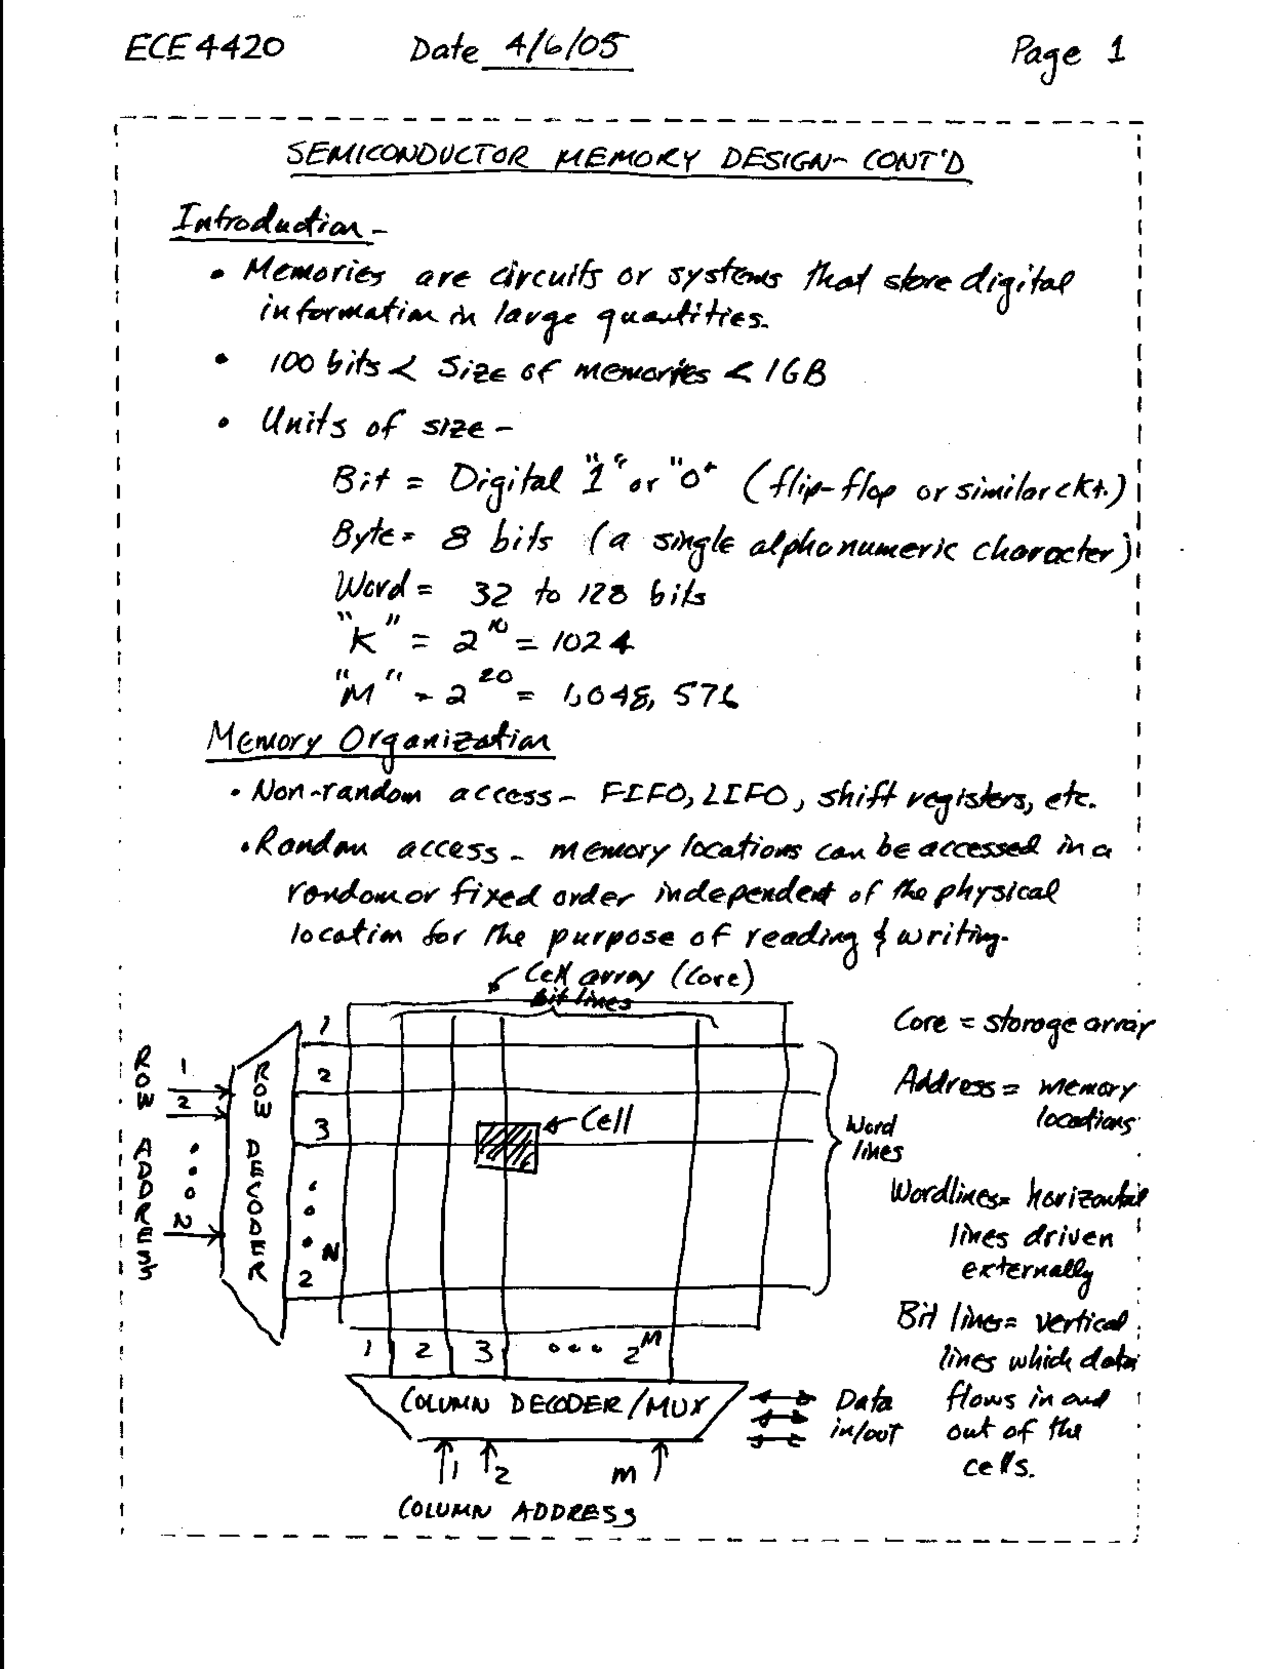 ECE 4420 Date 4/6/05 Page 1
SEMICONDUCTOR MEMORY DESIGN- CONT'D
Introduction -
• Memories are circuits or systems that store digital
information in large quantities.
• 100 bits < Size of memories < 1GB
• Units of size -
Bit = Digital "1" or "0" (flip-flop or similar ckt.)
Byte = 8 bits (a single alphanumeric character)
Word = 32 to 128 bits
"K" = 2^10 = 1024
"M" = 2^20 = 1,048,576
Memory Organization
• Non-random access - FIFO, LIFO, shift registers, etc.
• Random access - memory locations can be accessed in a
random or fixed order independent of the physical
location for the purpose of reading & writing.
Cell array (core)
bit lines
ROW ADDRESS
1
2
N
ROW DECODER
1
2
3
2^N
Cell
Word
lines
1 2 3 ••• 2^M
COLUMN DECODER/MUX
Data
in/out
1 2 M
COLUMN ADDRESS
Core = storage array
Address = memory
locations
Wordlines = horizontal
lines driven
externally
Bit lines = vertical
lines which data
flows in and
out of the
cells.